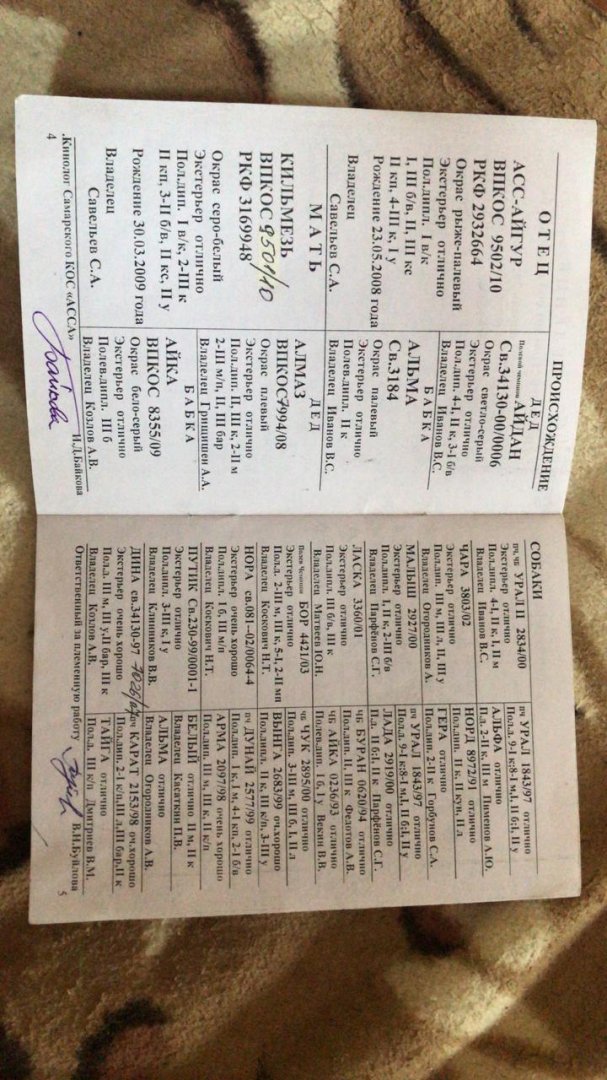 ПРОИСХОЖДЕНИЕ
ОТЕЦ
АСС-АЙГУР
ВПКОС 9502/10
РКФ 2932664
Окрас рыже-палевый
Экстерьер отлично
Пол.дипл. I в/к
I, III б/в, II, III кс
II кп, 4-III к, I у
Рождение 23.05.2008 года
Владелец
Савельев С.А.
МАТЬ
КИЛЬМЕЗЬ
ВПКОС 9501/10
РКФ 3169948
Окрас серо-белый
Экстерьер отлично
Пол.дип. I в/к, 2-III к
II кп, 3-II б/в, II кс, II у
Рождение 30.03.2009 года
Владелец
Савельев С.А.
ДЕД
Полевой чемпион АЙДАН
Св.34130-00/0006
Окрас светло-серый
Экстерьер отлично
Пол.дип. 4-I, II к, 3-I б/в
Владелец Иванов В.С.
БАБКА
АЛЬМА
Св.3184
Окрас палевый
Экстерьер отлично
Полев.дипл. II к
Владелец Иванов В.С.
ДЕД
АЛМАЗ
ВПКОС7994/08
Окрас плевый
Экстерьер отлично
Пол.дип. II, III к, 2-II м
2-III м/п, II, III бар
Владелец Грищишен А.А.
БАБКА
АЙКА
ВПКОС 8355/09
Окрас бело-серый
Экстерьер отлично
Полев.дипл. III б
Владелец Козлов А.В.
.Кинолог Самарского КОС «АССА» И.Д.Байкова
4
СОБАКИ
ПЧ,ЧБ УРАЛ II 2834/00
Экстерьер отлично
Пол.дипл. 4-I, II к, I, II м
Владелец Иванов В.С.
ЧАРА 3803/02
Экстерьер отлично
Пол.дип. III м, III л, II, III у
Владелец Огородников А.
МАЛЫШ 2927/00
Экстерьер отлично
Пол.дипл. I, II к, 2-III б/в
Владелец Парфёнов С.Г.
ЛАСКА 3360/01
Экстерьер отлично
Пол.дипл. III б/в, III к
Владелец Матвеев Ю.Н.
БОР 4421/03
Экстерьер отлично
Пол.д. 2-III м, III к, 5-I, 2-II мп
Владелец Коскович Н.Т.
НОРА св.081-02/0064-4
Экстерьер очень хорошо
Пол.дипл. I б, III м/п
Владелец Коскович Н.Т.
ПУТИК Св.230-99/0001-1
Экстерьер отлично
Пол.дипл. 3-III к, I у
Владелец Клиников В.В.
ДИНА св.34130-97
Экстерьер очень хорошо
Пол.д. III м, III у,II бар, III к
Владелец Козлов А.В.
ПЧ УРАЛ 1843/97 отлично
Пол.д. 9-I к;8-I м,I, III б;I, II у
АЛЬФА отлично
П.д. 2-II к, III м Пименов А.Ю.
НОРД 8972/91 отлично
Пол.дип. II к, II куп, II л
ГЕРА отлично
Пол.дип. 2-II к Горбунов С.Л.
ПЧ УРАЛ 1843/97 отлично
Пол.д. 9-I к;8-I м,I, III б;I, II у
ЛАДА 2919/00 отлично
П.д. II б;I, II к Парфёнов С.Г.
ЧБ БУРАН 0620/94 отлично
Пол.дип. I, III к Федотов А.В.
ЧБ АЙКА 0236/93 отлично
Полев.дип. I б, I у Векин В.В.
ЧБ ЧУК 2895/00 отлично
Пол.дип. 3-III м, III б, I, II л
ВЫНГА 2683/99 оч.хорошо
Пол.дип. II к, III к/п, 3-III у
ПЧ ДУНАЙ 2577/99 отлично
Пол.дип. I к, I м, 4-I кп, 2-I б/в
АРМА 2097/98 очень хорошо
Пол.дип. III м, III к, II к/п
БЕЛЫЙ отлично II м, II к
Владелец Касаткин П.В.
АЛЬМА отлично
Владелец Огородников А.В.
ПЧ КАРАТ 2153/98 оч.хорошо
Пол.дип. 2-I к/п,III л,III бар,II к
ТАЙГА отлично
Пол.д. III к/п Дмитриев В.М.
Ответственный за племенную работу В.И.Буйлова
5